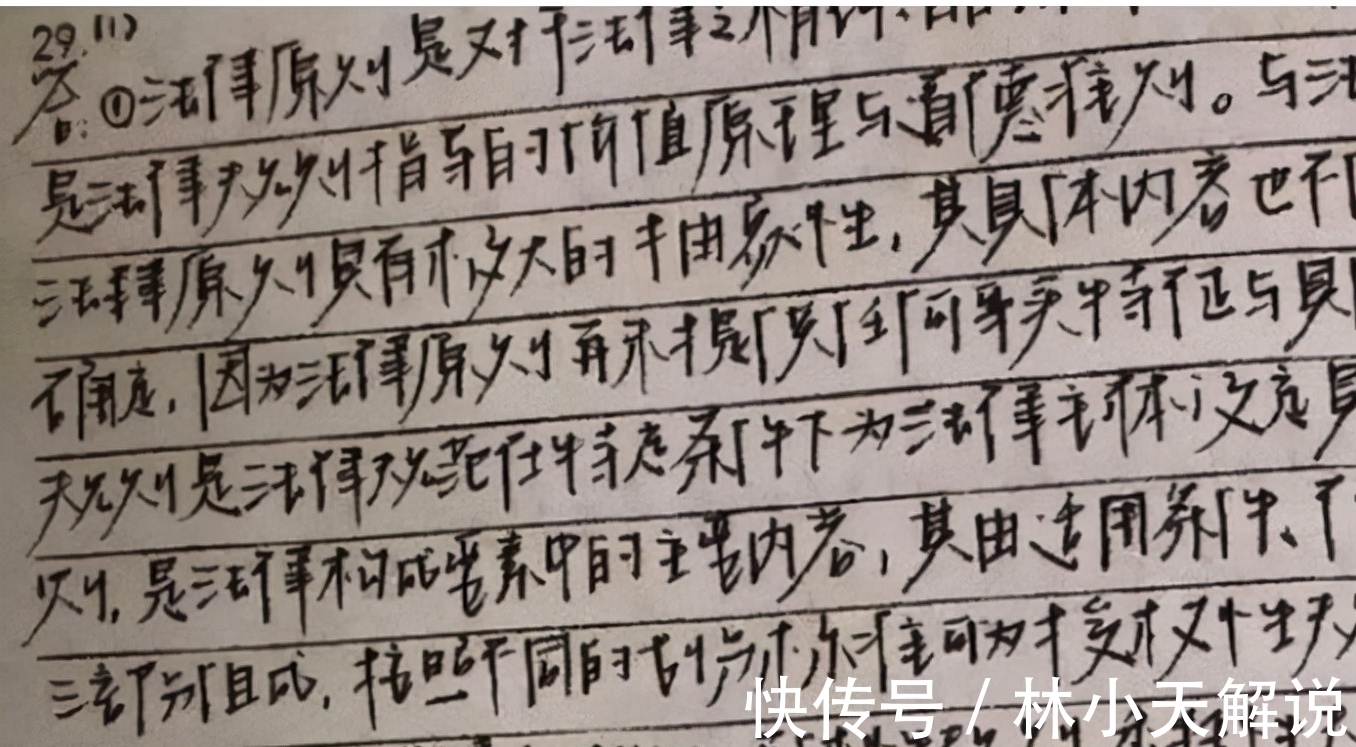 29.(1)
答:①法律原则是对于法律事之精神、品
是法律规则指导的价值原理与道德准则。与法
法律原则具有极大的抽象性,其具体内容也不
否确定,因为法律原则再未提供任何事实特征与具
规则是法律规范在特定条件下为法律主体设定具
则,是法律构成要素中的主要内容,其由适用条件、
三部分组成,按照不同的划分标准可为授权性规
快传号 / 林小天解说